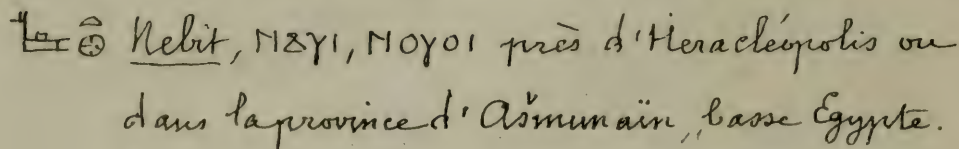 Nebit, ⲚⲀⲨⲒ, ⲚⲞⲨⲞⲒ près d'Heracléopolis ou
dans la province d'Ašmunaïn, basse Egypte.